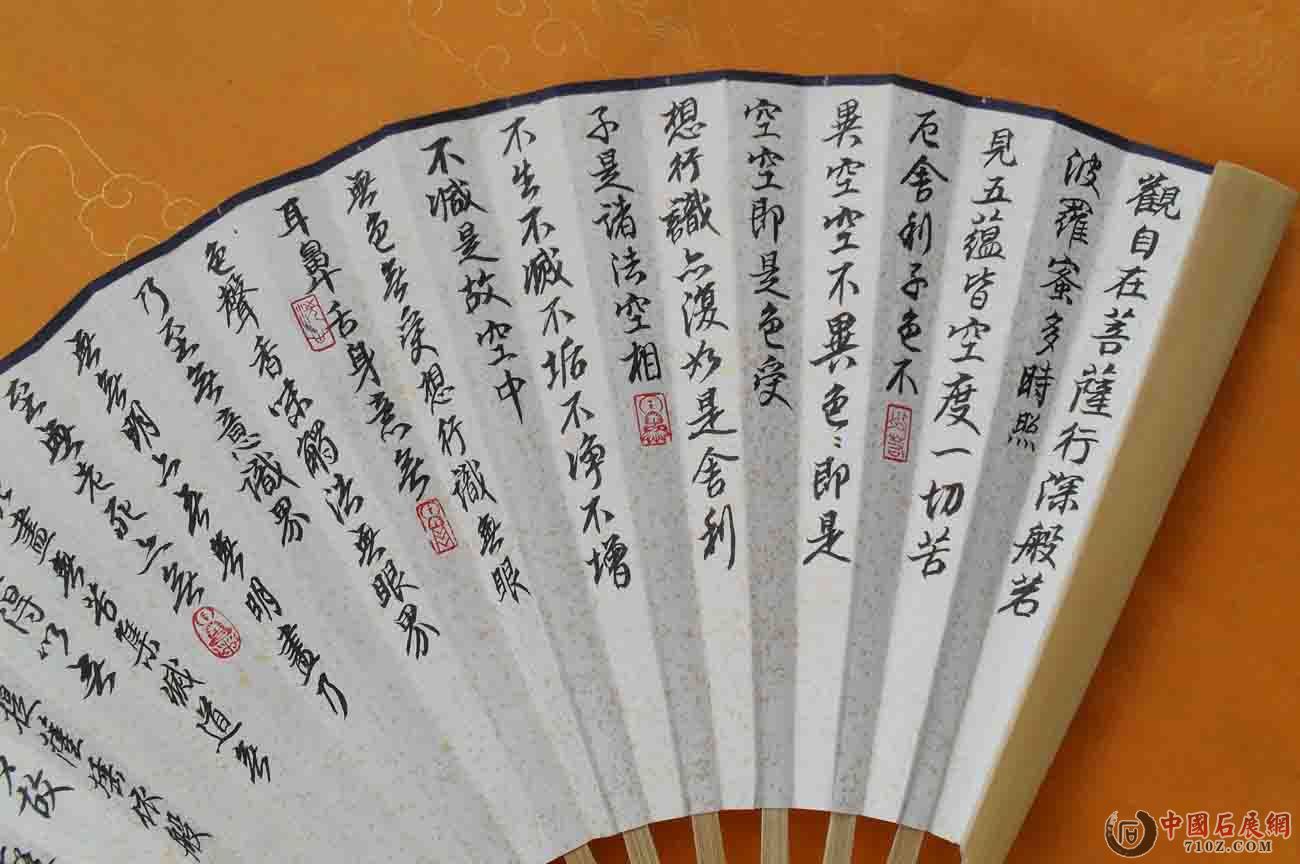 觀自在菩薩行深般若
波羅蜜多時照
見五蘊皆空度一切苦
厄舍利子色不
異空空不異色〻即是
空空即是色受
想行識亦復如是舍利
子是諸法空相
不生不滅不垢不淨不增
不減是故空中
無色無受想行識無眼
耳鼻舌身意無
色聲香味觸法無眼界
乃至無意識界
無無明亦無無明盡乃
至無老死亦無
盡無苦集滅道無
得以無
提薩埵依般
故
中國石展網
710Z.COM